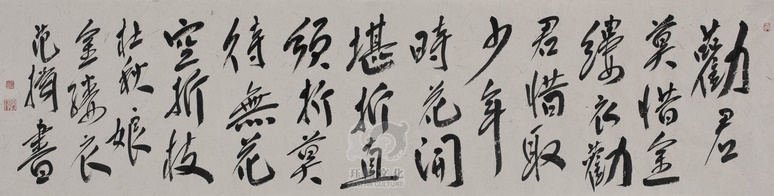 勸君
莫惜金
縷衣勸
君惜取
少年
時花開
堪折直
須折莫
待無花
空折枝
杜秋娘
金縷衣
范 書